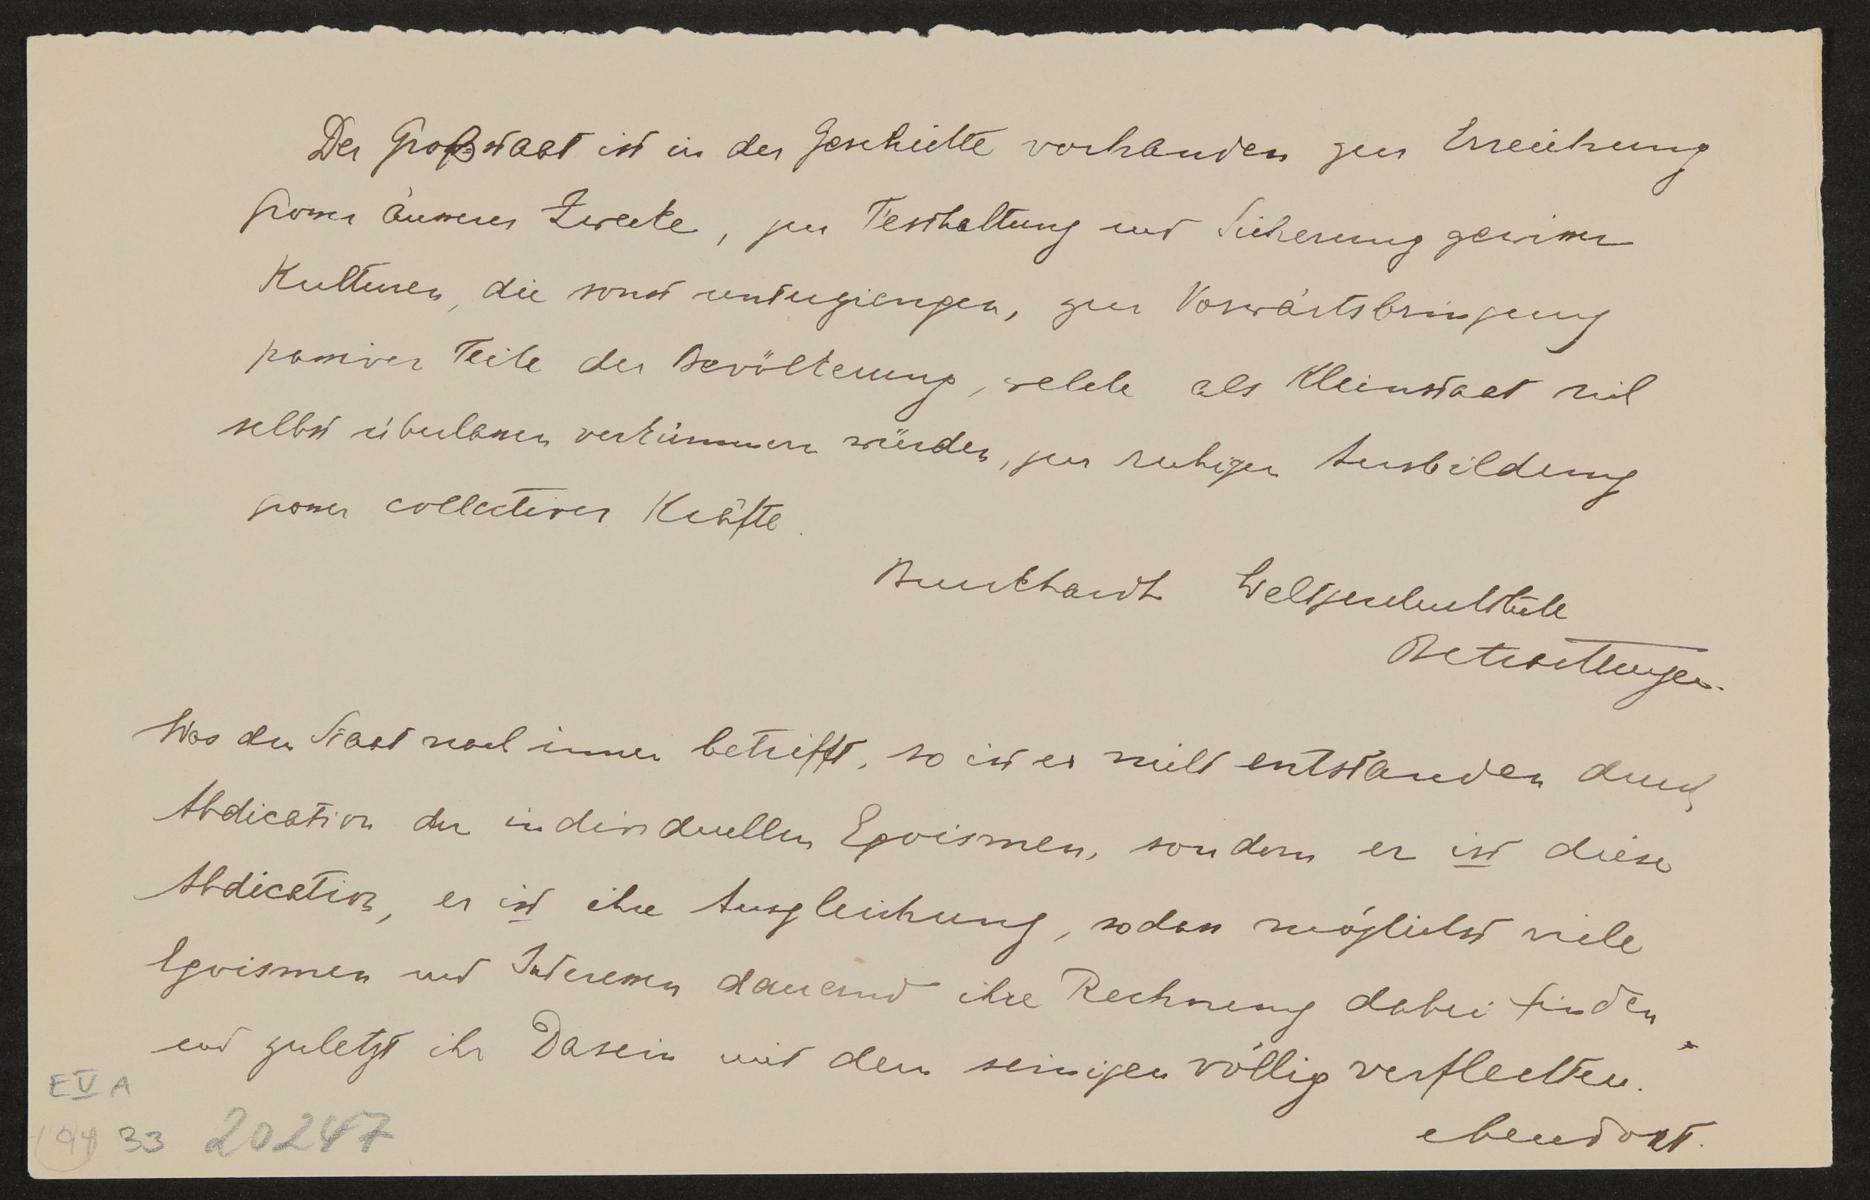 Der Großstaat ist in der Geschichte vorhanden zur Erreichung
grosser äusserer Zwecke, zur Festhaltung und Sicherung gewisser
Kulturen, die sonst untergiengen, zur Vorwärtsbringung
passiver Teile der Bevölkerung, welche als Kleinstaat sich
selbst überlassen verkümmern würden, zur ruhigen Ausbildung
grosser collectiver Kräfte.
Burckhardt Weltgeschichtliche
Betrachtungen.
Was den Staat nach innen betrifft, so ist er nicht entstanden durch
Abdication der individuellen Egoismen, sondern er ist diese
Abdication, er ist ihre Ausgleichung, sodass möglichst viele
Egoismen und Interessen dauernd ihre Rechnung dabei finden
und zuletzt ihr Dasein mit dem seinigen völlig verflechten.
ebendort.
E V A
94 33 20247